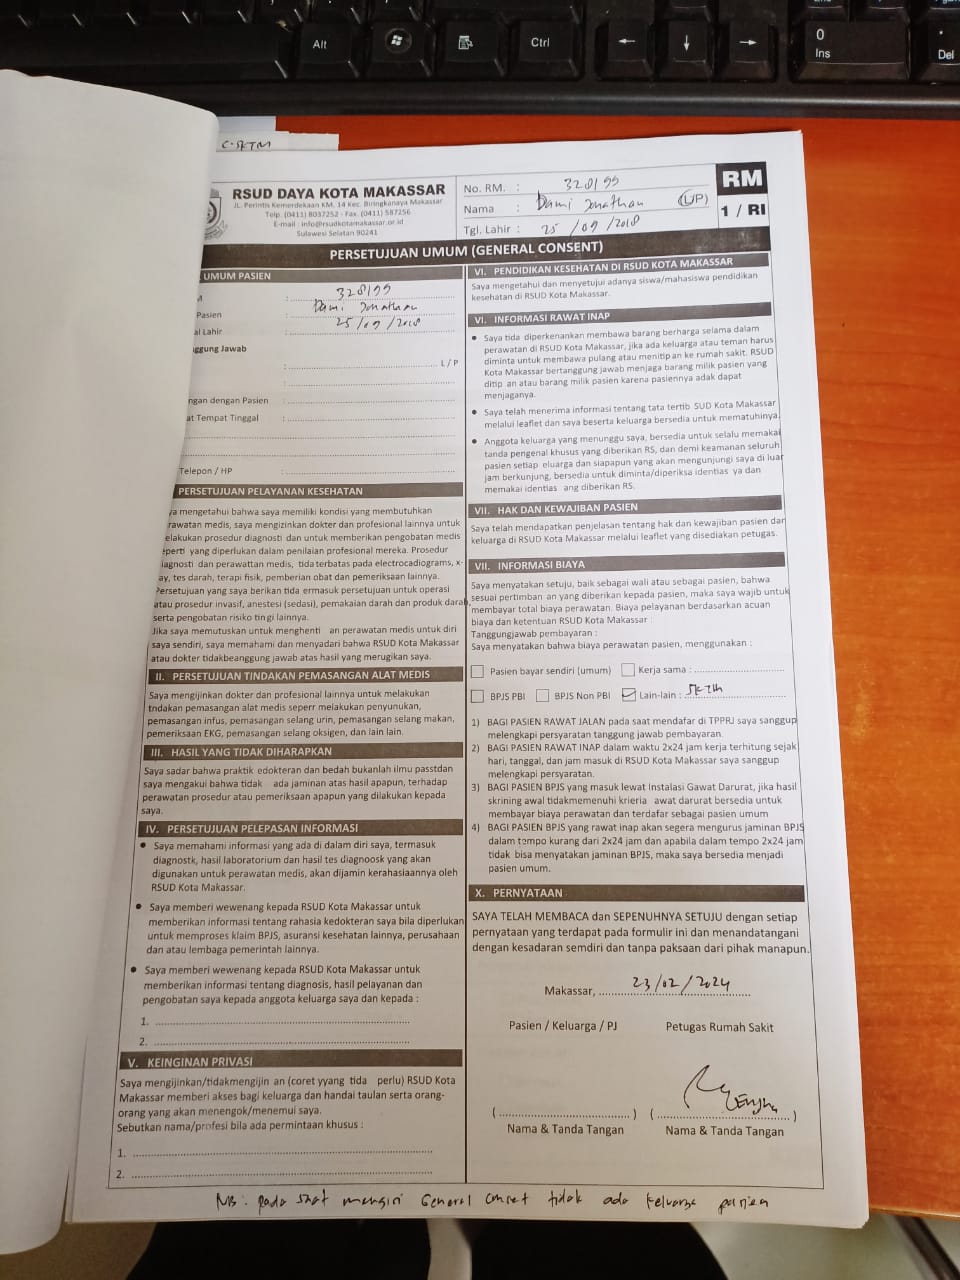 Alt
Ctrl
←
↓
→
0
Ins
.
Del
C. SKTM
RSUD DAYA KOTA MAKASSAR
JL. Perintis Kemerdekaan KM. 14 Kec. Biringkanaya Makassar
Telp. (0411) 8037252 - Fax. (0411) 587256
E-mail : info@rsudkotamakassar.or.id
Sulawesi Selatan 90241
No. RM. : 328199
Nama : Dami Jonathan (L/P)
Tgl. Lahir : 25 / 09 / 2018
RM
1 / RI
PERSETUJUAN UMUM (GENERAL CONSENT)
UMUM PASIEN
M : 328199
Pasien : Dami Jonathan
al Lahir : 25 / 09 / 2018
ggung Jawab
: L / P
:
ngan dengan Pasien :
at Tempat Tinggal :
Telepon / HP :
PERSETUJUAN PELAYANAN KESEHATAN
ya mengetahui bahwa saya memiliki kondisi yang membutuhkan
rawatan medis, saya mengizinkan dokter dan profesional lainnya untuk
elakukan prosedur diagnosti dan untuk memberikan pengobatan medis
eperti yang diperlukan dalam penilaian profesional mereka. Prosedur
iagnosti dan perawattan medis, tida terbatas pada electrocadiograms, x-
ay, tes darah, terapi fisik, pemberian obat dan pemeriksaan lainnya.
Persetujuan yang saya berikan tida ermasuk persetujuan untuk operasi
atau prosedur invasif, anestesi (sedasi), pemakaian darah dan produk darah,
serta pengobatan risiko tingi lainnya.
Jika saya memutuskan untuk menghenti an perawatan medis untuk diri
saya sendiri, saya memahami dan menyadari bahwa RSUD Kota Makassar
atau dokter tidakbeanggung jawab atas hasil yang merugikan saya.
II. PERSETUJUAN TINDAKAN PEMASANGAN ALAT MEDIS
Saya mengijinkan dokter dan profesional lainnya untuk melakukan
tndakan pemasangan alat medis seperr melakukan penyunukan,
pemasangan infus, pemasangan selang urin, pemasangan selang makan,
pemeriksaan EKG, pemasangan selang oksigen, dan lain lain.
III. HASIL YANG TIDAK DIHARAPKAN
Saya sadar bahwa praktik edokteran dan bedah bukanlah ilmu passtdan
saya mengakui bahwa tidak ada jaminan atas hasil apapun, terhadap
perawatan prosedur atau pemeriksaan apapun yang dilakukan kepada
saya.
IV. PERSETUJUAN PELEPASAN INFORMASI
• Saya memahami informasi yang ada di dalam diri saya, termasuk
diagnostk, hasil laboratorium dan hasil tes diagnoosk yang akan
digunakan untuk perawatan medis, akan dijamin kerahasiaannya oleh
RSUD Kota Makassar.
• Saya memberi wewenang kepada RSUD Kota Makassar untuk
memberikan informasi tentang rahasia kedokteran saya bila diperlukan
untuk memproses klaim BPJS, asuransi kesehatan lainnya, perusahaan
dan atau lembaga pemerintah lainnya.
• Saya memberi wewenang kepada RSUD Kota Makassar untuk
memberikan informasi tentang diagnosis, hasil pelayanan dan
pengobatan saya kepada anggota keluarga saya dan kepada :
1.
2.
V. KEINGINAN PRIVASI
Saya mengijinkan/tidakmengijin an (coret yyang tida perlu) RSUD Kota
Makassar memberi akses bagi keluarga dan handai taulan serta orang-
orang yang akan menengok/menemui saya.
Sebutkan nama/profesi bila ada permintaan khusus :
1.
2.
VI. PENDIDIKAN KESEHATAN DI RSUD KOTA MAKASSAR
Saya mengetahui dan menyetujui adanya siswa/mahasiswa pendidikan
kesehatan di RSUD Kota Makassar.
VI. INFORMASI RAWAT INAP
• Saya tida diperkenankan membawa barang berharga selama dalam
perawatan di RSUD Kota Makassar, jika ada keluarga atau teman harus
diminta untuk membawa pulang atau menitip an ke rumah sakit. RSUD
Kota Makassar bertanggung jawab menjaga barang milik pasien yang
ditip an atau barang milik pasien karena pasiennya adak dapat
menjaganya.
• Saya telah menerima informasi tentang tata tertib SUD Kota Makassar
melalui leaflet dan saya beserta keluarga bersedia untuk mematuhinya.
• Anggota keluarga yang menunggu saya, bersedia untuk selalu memakai
tanda pengenal khusus yang diberikan RS, dan demi keamanan seluruh
pasien setiap eluarga dan siapapun yang akan mengunjungi saya di luar
jam berkunjung, bersedia untuk diminta/diperiksa identias ya dan
memakai identias ang diberikan RS.
VII. HAK DAN KEWAJIBAN PASIEN
Saya telah mendapatkan penjelasan tentang hak dan kewajiban pasien dar
keluarga di RSUD Kota Makassar melalui leaflet yang disediakan petugas.
VII. INFORMASI BIAYA
Saya menyatakan setuju, baik sebagai wali atau sebagai pasien, bahwa
sesuai pertimban an yang diberikan kepada pasien, maka saya wajib untuk
membayar total biaya perawatan. Biaya pelayanan berdasarkan acuan
biaya dan ketentuan RSUD Kota Makassar :
Tanggungjawab pembayaran :
Saya menyatakan bahwa biaya perawatan pasien, menggunakan :
Pasien bayar sendiri (umum) Kerja sama :
BPJS PBI BPJS Non PBI Lain-lain : SKTM
1) BAGI PASIEN RAWAT JALAN pada saat mendafar di TPPRJ saya sanggup
melengkapi persyaratan tanggung jawab pembayaran.
2) BAGI PASIEN RAWAT INAP dalam waktu 2x24 jam kerja terhitung sejak
hari, tanggal, dan jam masuk di RSUD Kota Makassar saya sanggup
melengkapi persyaratan.
3) BAGI PASIEN BPJS yang masuk lewat Instalasi Gawat Darurat, jika hasil
skrining awal tidakmemenuhi krieria awat darurat bersedia untuk
membayar biaya perawatan dan terdafar sebagai pasien umum
4) BAGI PASIEN BPJS yang rawat inap akan segera mengurus jaminan BPJS
dalam tempo kurang dari 2x24 jam dan apabila dalam tempo 2x24 jam
tidak bisa menyatakan jaminan BPJS, maka saya bersedia menjadi
pasien umum.
X. PERNYATAAN
SAYA TELAH MEMBACA dan SEPENUHNYA SETUJU dengan setiap
pernyataan yang terdapat pada formulir ini dan menandatangani
dengan kesadaran semdiri dan tanpa paksaan dari pihak manapun.
Makassar, 23/02/2024
Pasien / Keluarga / PJ Petugas Rumah Sakit
Nama & Tanda Tangan Nama & Tanda Tangan
NB : pada saat mengisi General Conset tidak ada keluarga pasien